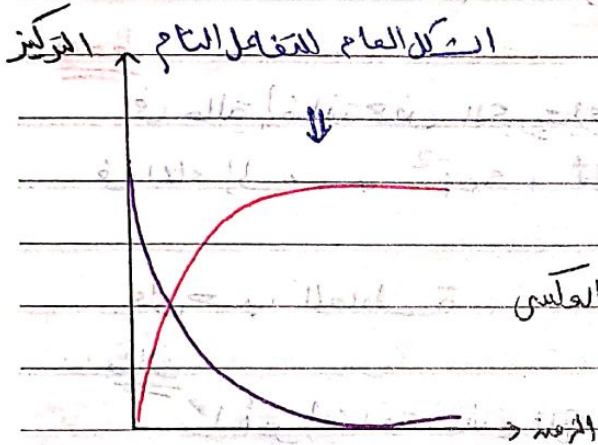 الشكل العام للتفاعل التام
التركيز
العكسى
الزمن